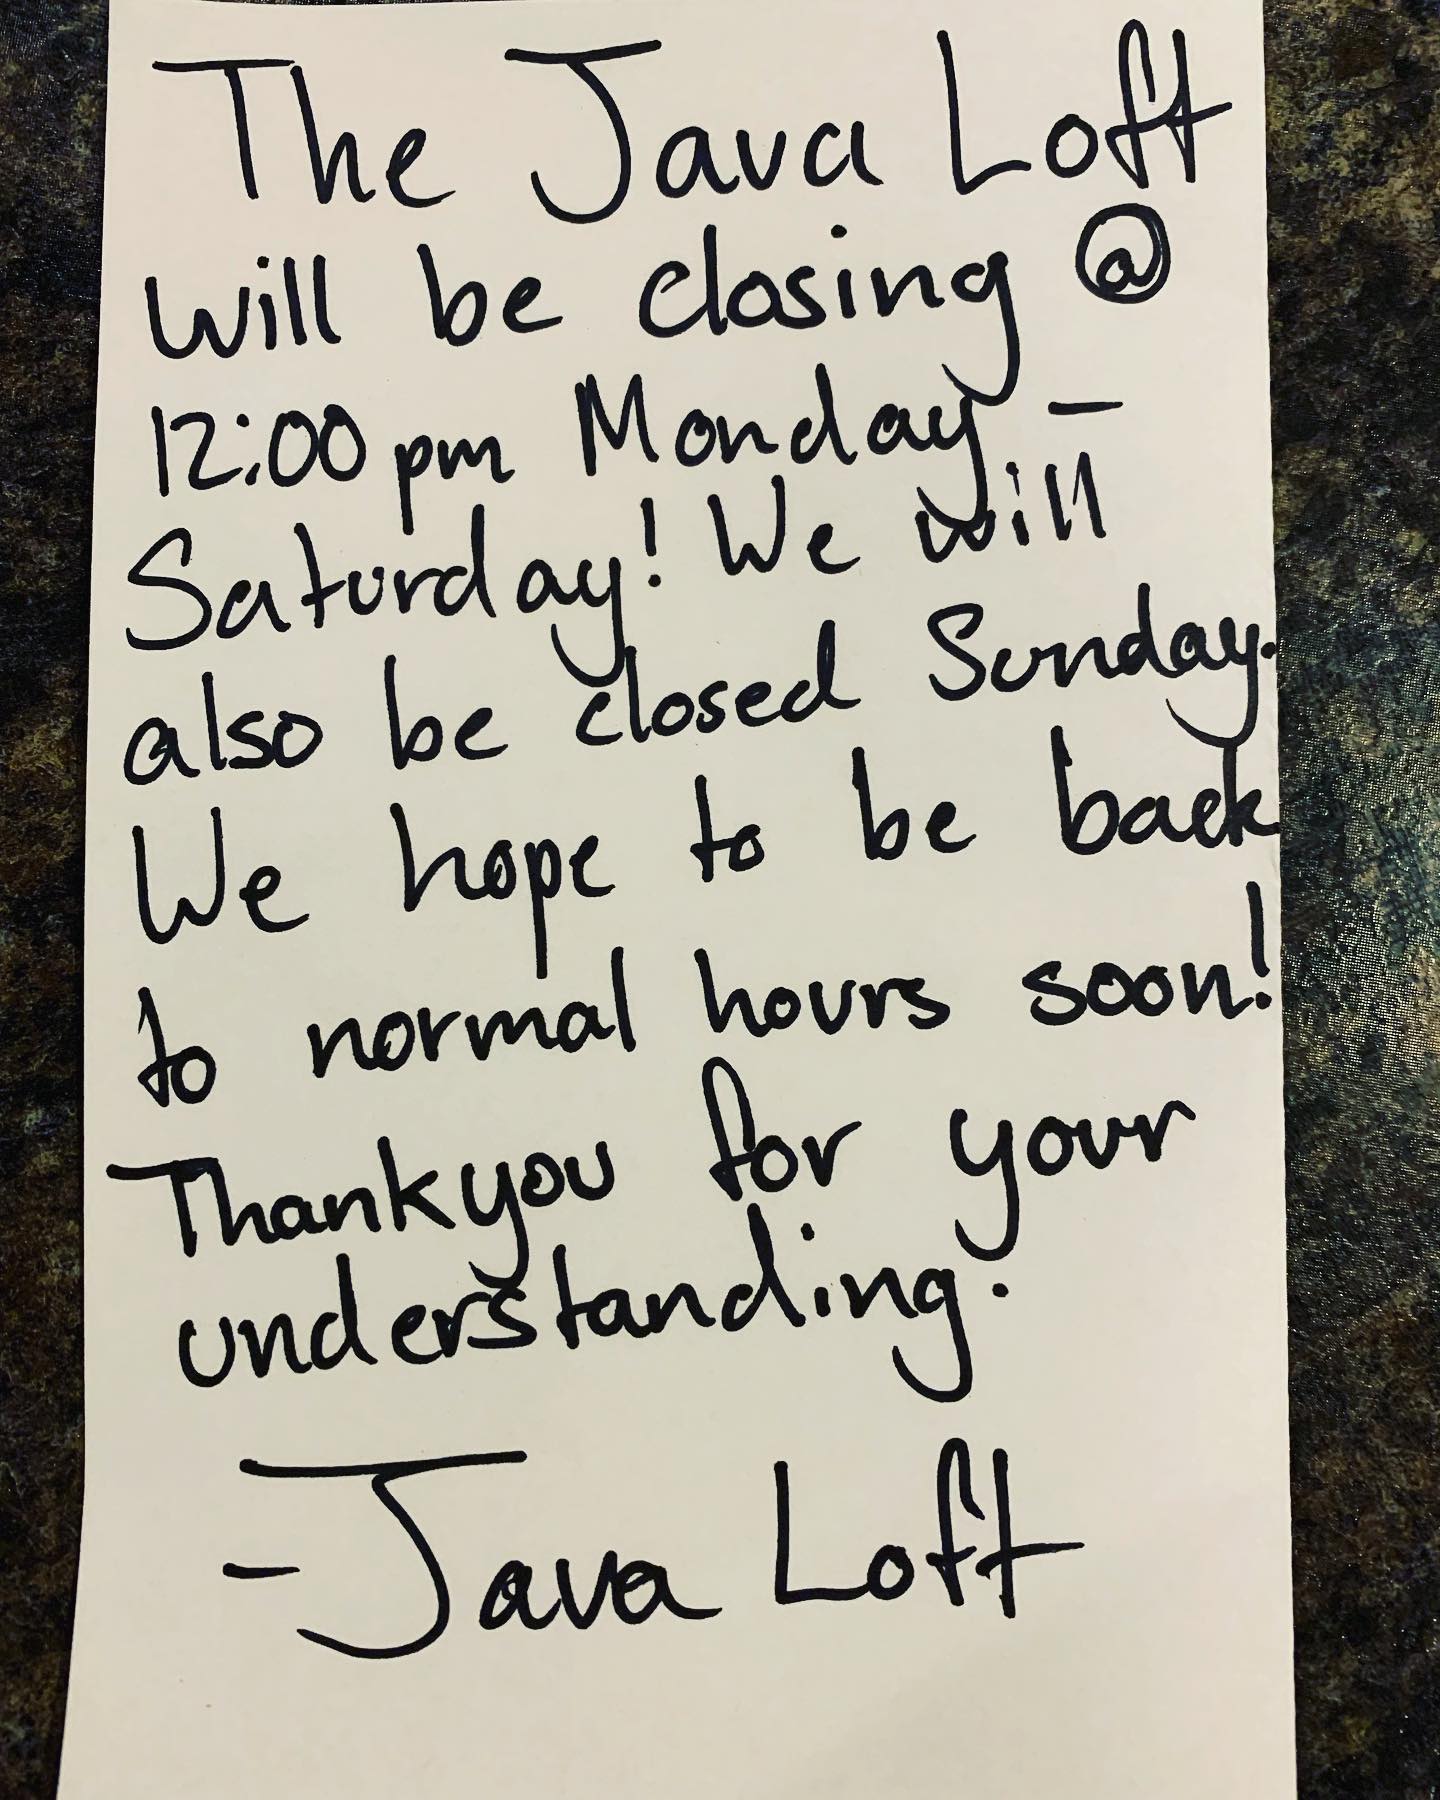 The Java Loft
will be closing @
12:00pm Monday –
Saturday! We will
also be closed Sunday.
We hope to be back
to normal hours soon!
Thankyou for your
understanding.
- Java Loft